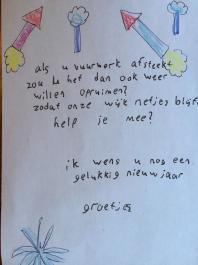 als u vuurwerk afsteekt
zou u het dan ook weer
willen opruimen?
zodat onze wijk netjes blijft
help je mee?
ik wens u nog een
gelukkig nieuwjaar
groetjes